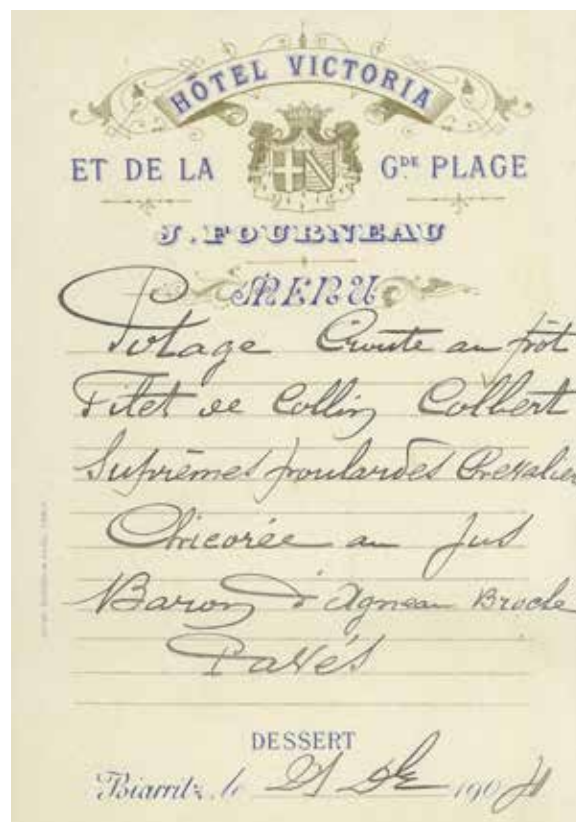 HÔTEL VICTORIA
ET DE LA GDE PLAGE
J. FOURNEAU
MENU
Potage Croute au pôt
Filet de Collin Colbert
Suprèmes poulardes Chevalier
Chicorée au Jus
Baron d'Agneau Broche
Pavés
DESSERT
Biarritz, le 21 190